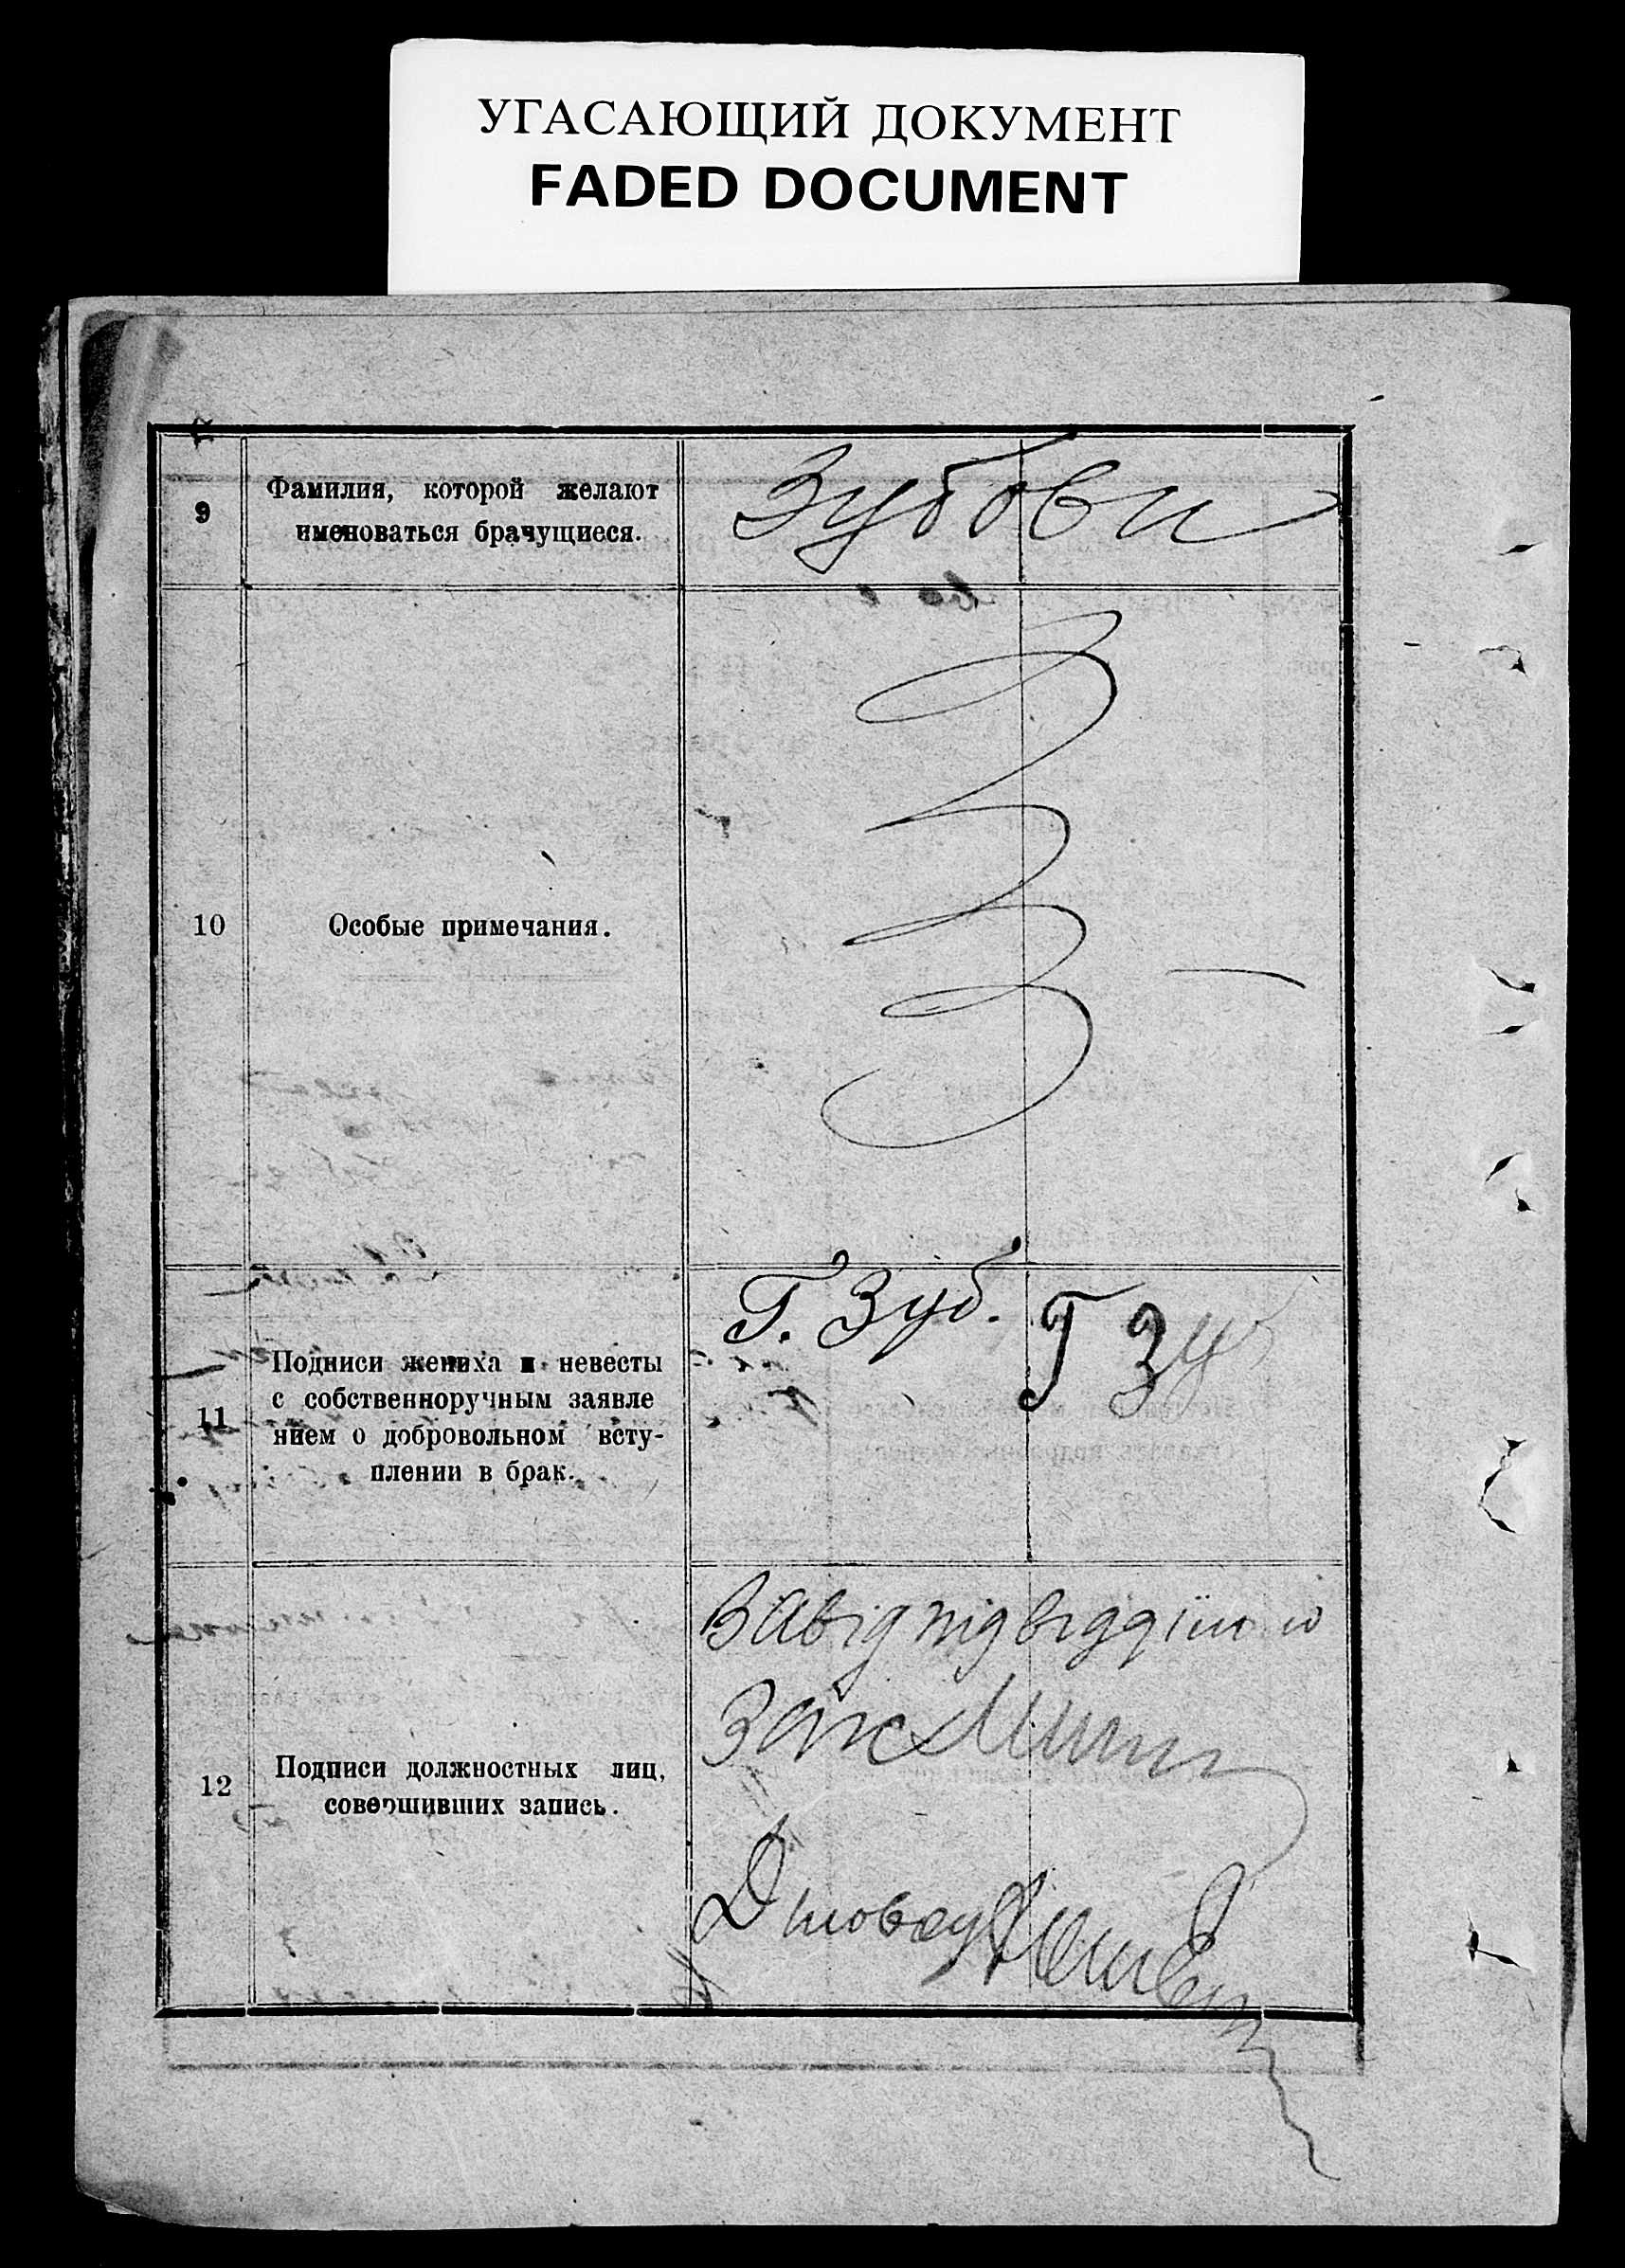 УГАСАЮЩИЙ ДОКУМЕНТ
FADED DOCUMENT
9
Фамилия, которой желают
именоваться брачущиеся.
Зубови
10
Особые примечания.
11
Подписи жениха и невесты
с собственноручным заявле
нием о добровольном всту-
плении в брак.
Г. Зуб.
Г Зуб
12
Подписи должностных лиц,
совершивших запись.
Завідпідвідділом
Діловод